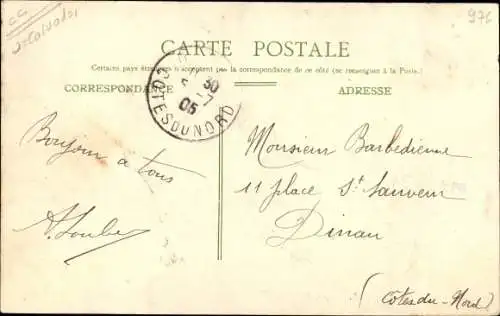 976
CARTE POSTALE
Certains pays étrangers n'acceptent pas la correspondance de ce côté (se renseigner à la Poste.)
CORRESPONDANCE
ADRESSE
30
05
COTES DU NORD
Bonjour à tous
Monsieur Barbédienne
11 place St Sauveur
Dinan
(Cotes du Nord)